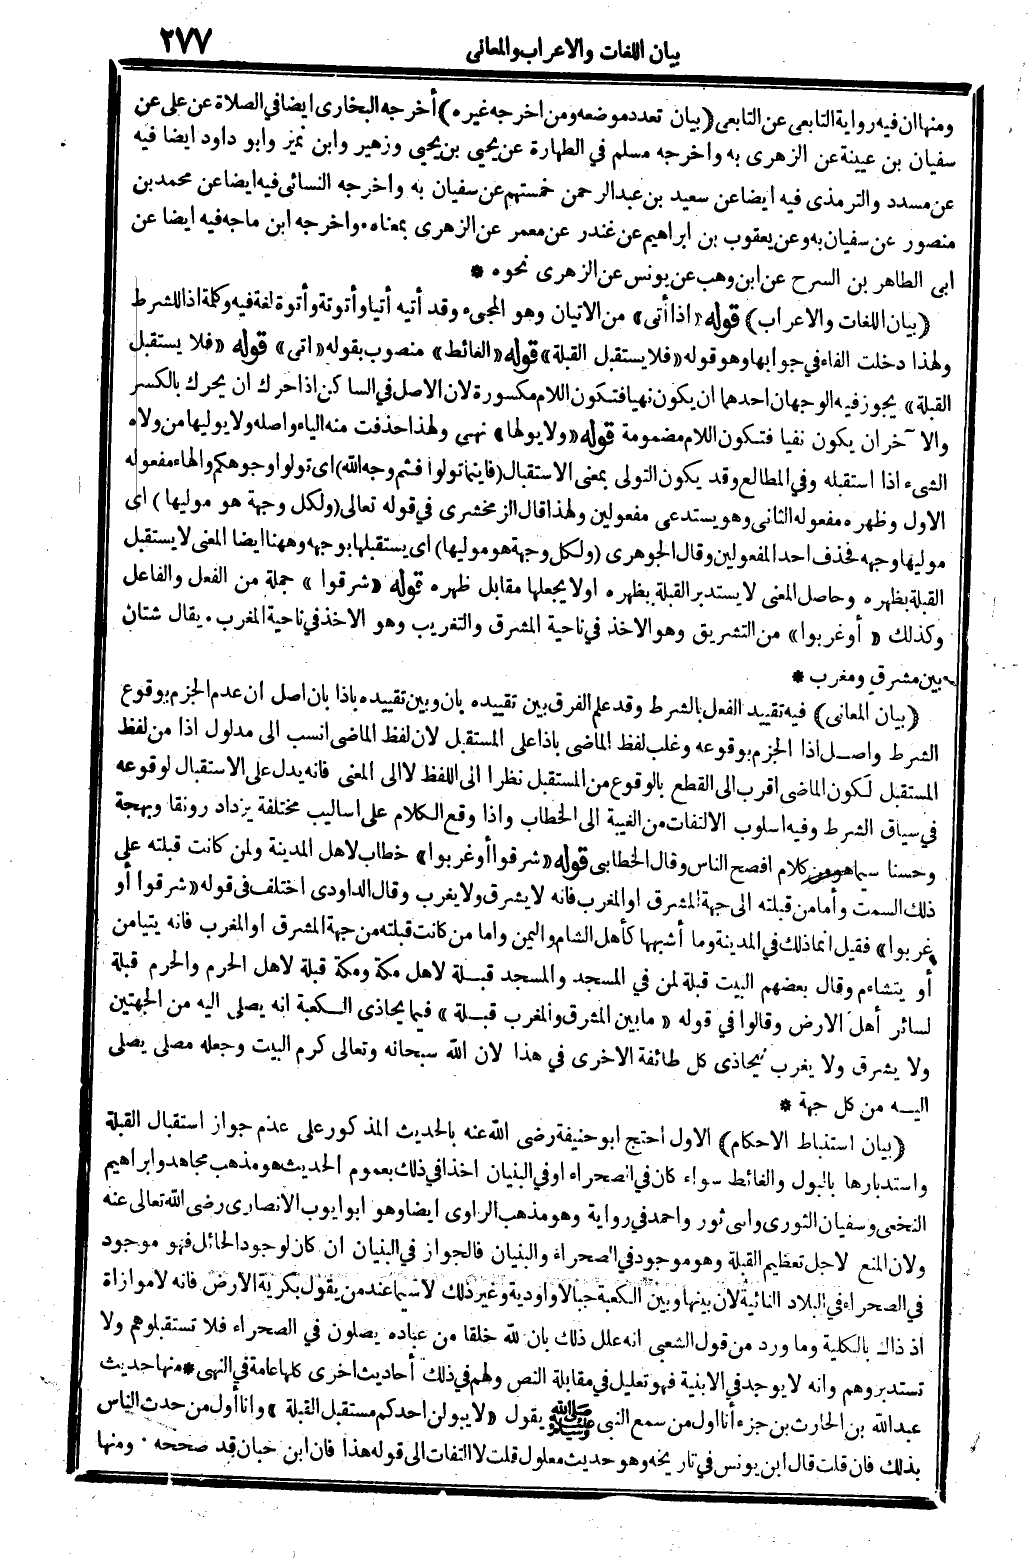 بيان اللغات والاعراب والمعانى ٢٧٧
ومنها ان فيه رواية التابعى عن التابعى (بيان تعدد موضعه ومن اخرجه غيره) أخرجه البخارى ايضا فى الصلاة عن على عن
سفيان بن عيينة عن الزهرى به واخرجه مسلم في الطهارة عن يحيى بن يحيى وزهير وابن نمير وابو داود ايضا فيه
عن مسدد والترمذى فيه ايضا عن سعيد بن عبد الرحمن خمستهم عن سفيان به واخرجه النسائى فيه ايضا عن محمد بن
منصور عن سفيان به وعن يعقوب بن ابراهيم عن غندر عن معمر عن الزهرى بمعناه٠ واخرجه ابن ماجه فيه ايضا عن
ابى الطاهر بن السرح عن ابن وهب عن يونس عن الزهرى نحوه *
(بيان اللغات والاعراب) قوله «اذا أتى» من الاتيان وهو المجىء وقد أتيه أتيا وأتوتة وأتوة لغة فيه وكلمة اذا للشرط
ولهذا دخلت الفاء في جوابها وهو قوله «فلا يستقبل القبلة» قوله «الغائط» منصوب بقوله «اتى» قوله «فلا يستقبل
القبلة» يجوز فيه الوجهان احدهما ان يكون نهيا فتكون اللام مكسورة لان الاصل في الساكن اذا حرك ان يحرك بالكسر
والآخر ان يكون نفيا فتكون اللام مضمومة قوله «ولا يولها» نهى ولهذا حذفت منه الياء واصله ولا يوليها من ولاه
الشىء اذا استقبله وفي المطالع وقد يكون التولى بمعنى الاستقبال (فاينما تولوا فثم وجه الله) اى تولوا وجوهكم والهاء مفعوله
الاول وظهره مفعوله الثانى وهو يستدعى مفعولين ولهذا قال الزمخشرى في قوله تعالى (ولكل وجهة هو موليها) اى
موليها وجهه فحذف احد المفعولين وقال الجوهرى (ولكل وجهة هو موليها) اى يستقبلها بوجهه وههنا ايضا المعنى لا يستقبل
القبلة بظهره وحاصل المعنى لا يستدبر القبلة بظهره اولا يجعلها مقابل ظهره قوله «شرقوا» جملة من الفعل والفاعل
وكذلك «أو غربوا» من التشريق وهو الاخذ في ناحية المشرق والتغريب وهو الاخذ في ناحية المغرب. يقال شتان
بين مشرق ومغرب *
(بيان المعانى) فيه تقييد الفعل بالشرط وقد علم الفرق بين تقييده بان وبين تقييده باذا بان اصل ان عدم الجزم بوقوع
الشرط واصل اذا الجزم بوقوعه وغلب لفظ الماضى باذا على المستقبل لان لفظ الماضى انسب الى مدلول اذا من لفظ
المستقبل لكون الماضى اقرب الى القطع بالوقوع من المستقبل نظرا الى اللفظ لا الى المعنى فانه يدل على الاستقبال لوقوعه
في سياق الشرط وفيه اسلوب الالتفات من الغيبة الى الخطاب واذا وقع الكلام على اساليب مختلفة يزداد رونقا وبهجة
وحسنا سيما هو من كلام افصح الناس وقال الخطابى قوله «شرقوا أو غربوا» خطاب لاهل المدينة ولمن كانت قبلته على
ذلك السمت وأما من قبلته الى جهة المشرق او المغرب فانه لا يشرق ولا يغرب وقال الداودى اختلف فى قوله «شرقوا أو
غربوا» فقيل انما ذلك في المدينة وما أشبهها كأهل الشام واليمن واما من كانت قبلته من جهة المشرق او المغرب فانه يتيامن
أو يتشاءم وقال بعضهم البيت قبلة لمن في المسجد والمسجد قبلة لاهل مكة ومكة قبلة لاهل الحرم والحرم قبلة
لسائر أهل الارض وقالوا في قوله «ما بين المشرق والمغرب قبلة» فيما يحاذى الكعبة انه يصلى اليه من الجهتين
ولا يشرق ولا يغرب يحاذى كل طائفة الاخرى في هذا لان الله سبحانه وتعالى كرم البيت وجعله مصلى يصلى
اليه من كل جهة *
(بيان استنباط الاحكام) الاول احتج ابو حنيفة رضى الله عنه بالحديث المذكور على عدم جواز استقبال القبلة
واستدبارها بالبول والغائط سواء كان في الصحراء او في البنيان اخذا في ذلك بعموم الحديث هو مذهب مجاهد وابراهيم
النخعى وسفيان الثورى وابى ثور واحمد في رواية وهو مذهب الراوى ايضا وهو ابو ايوب الانصارى رضى الله تعالى عنه
ولان المنع لاجل تعظيم القبلة وهو موجود في الصحراء والبنيان فالجواز في البنيان ان كان لوجود الحائل فهو موجود
في الصحراء في البلاد النائية لان بينها وبين الكعبة جبالا واودية وغير ذلك لا سيما عند من يقول بكرية الارض فانه لا موازاة
اذ ذاك بالكلية وما ورد من قول الشعبى انه علل ذلك بان لله خلقا من عباده يصلون في الصحراء فلا تستقبلوهم ولا
تستدبروهم وانه لا يوجد في الابنية فهو تعليل في مقابلة النص ولهم في ذلك أحاديث اخرى كلها عامة في النهى * منها حديث
عبد الله بن الحارث بن جزء أنا اول من سمع النبى ﷺ يقول «لا يبولن احدكم مستقبل القبلة» وانا أول من حدث الناس
بذلك فان قلت قال ابن يونس في تاريخه وهو حديث معلول قلت لا التفات الى قوله هذا فان ابن حبان قد صححه ٠ ومنها